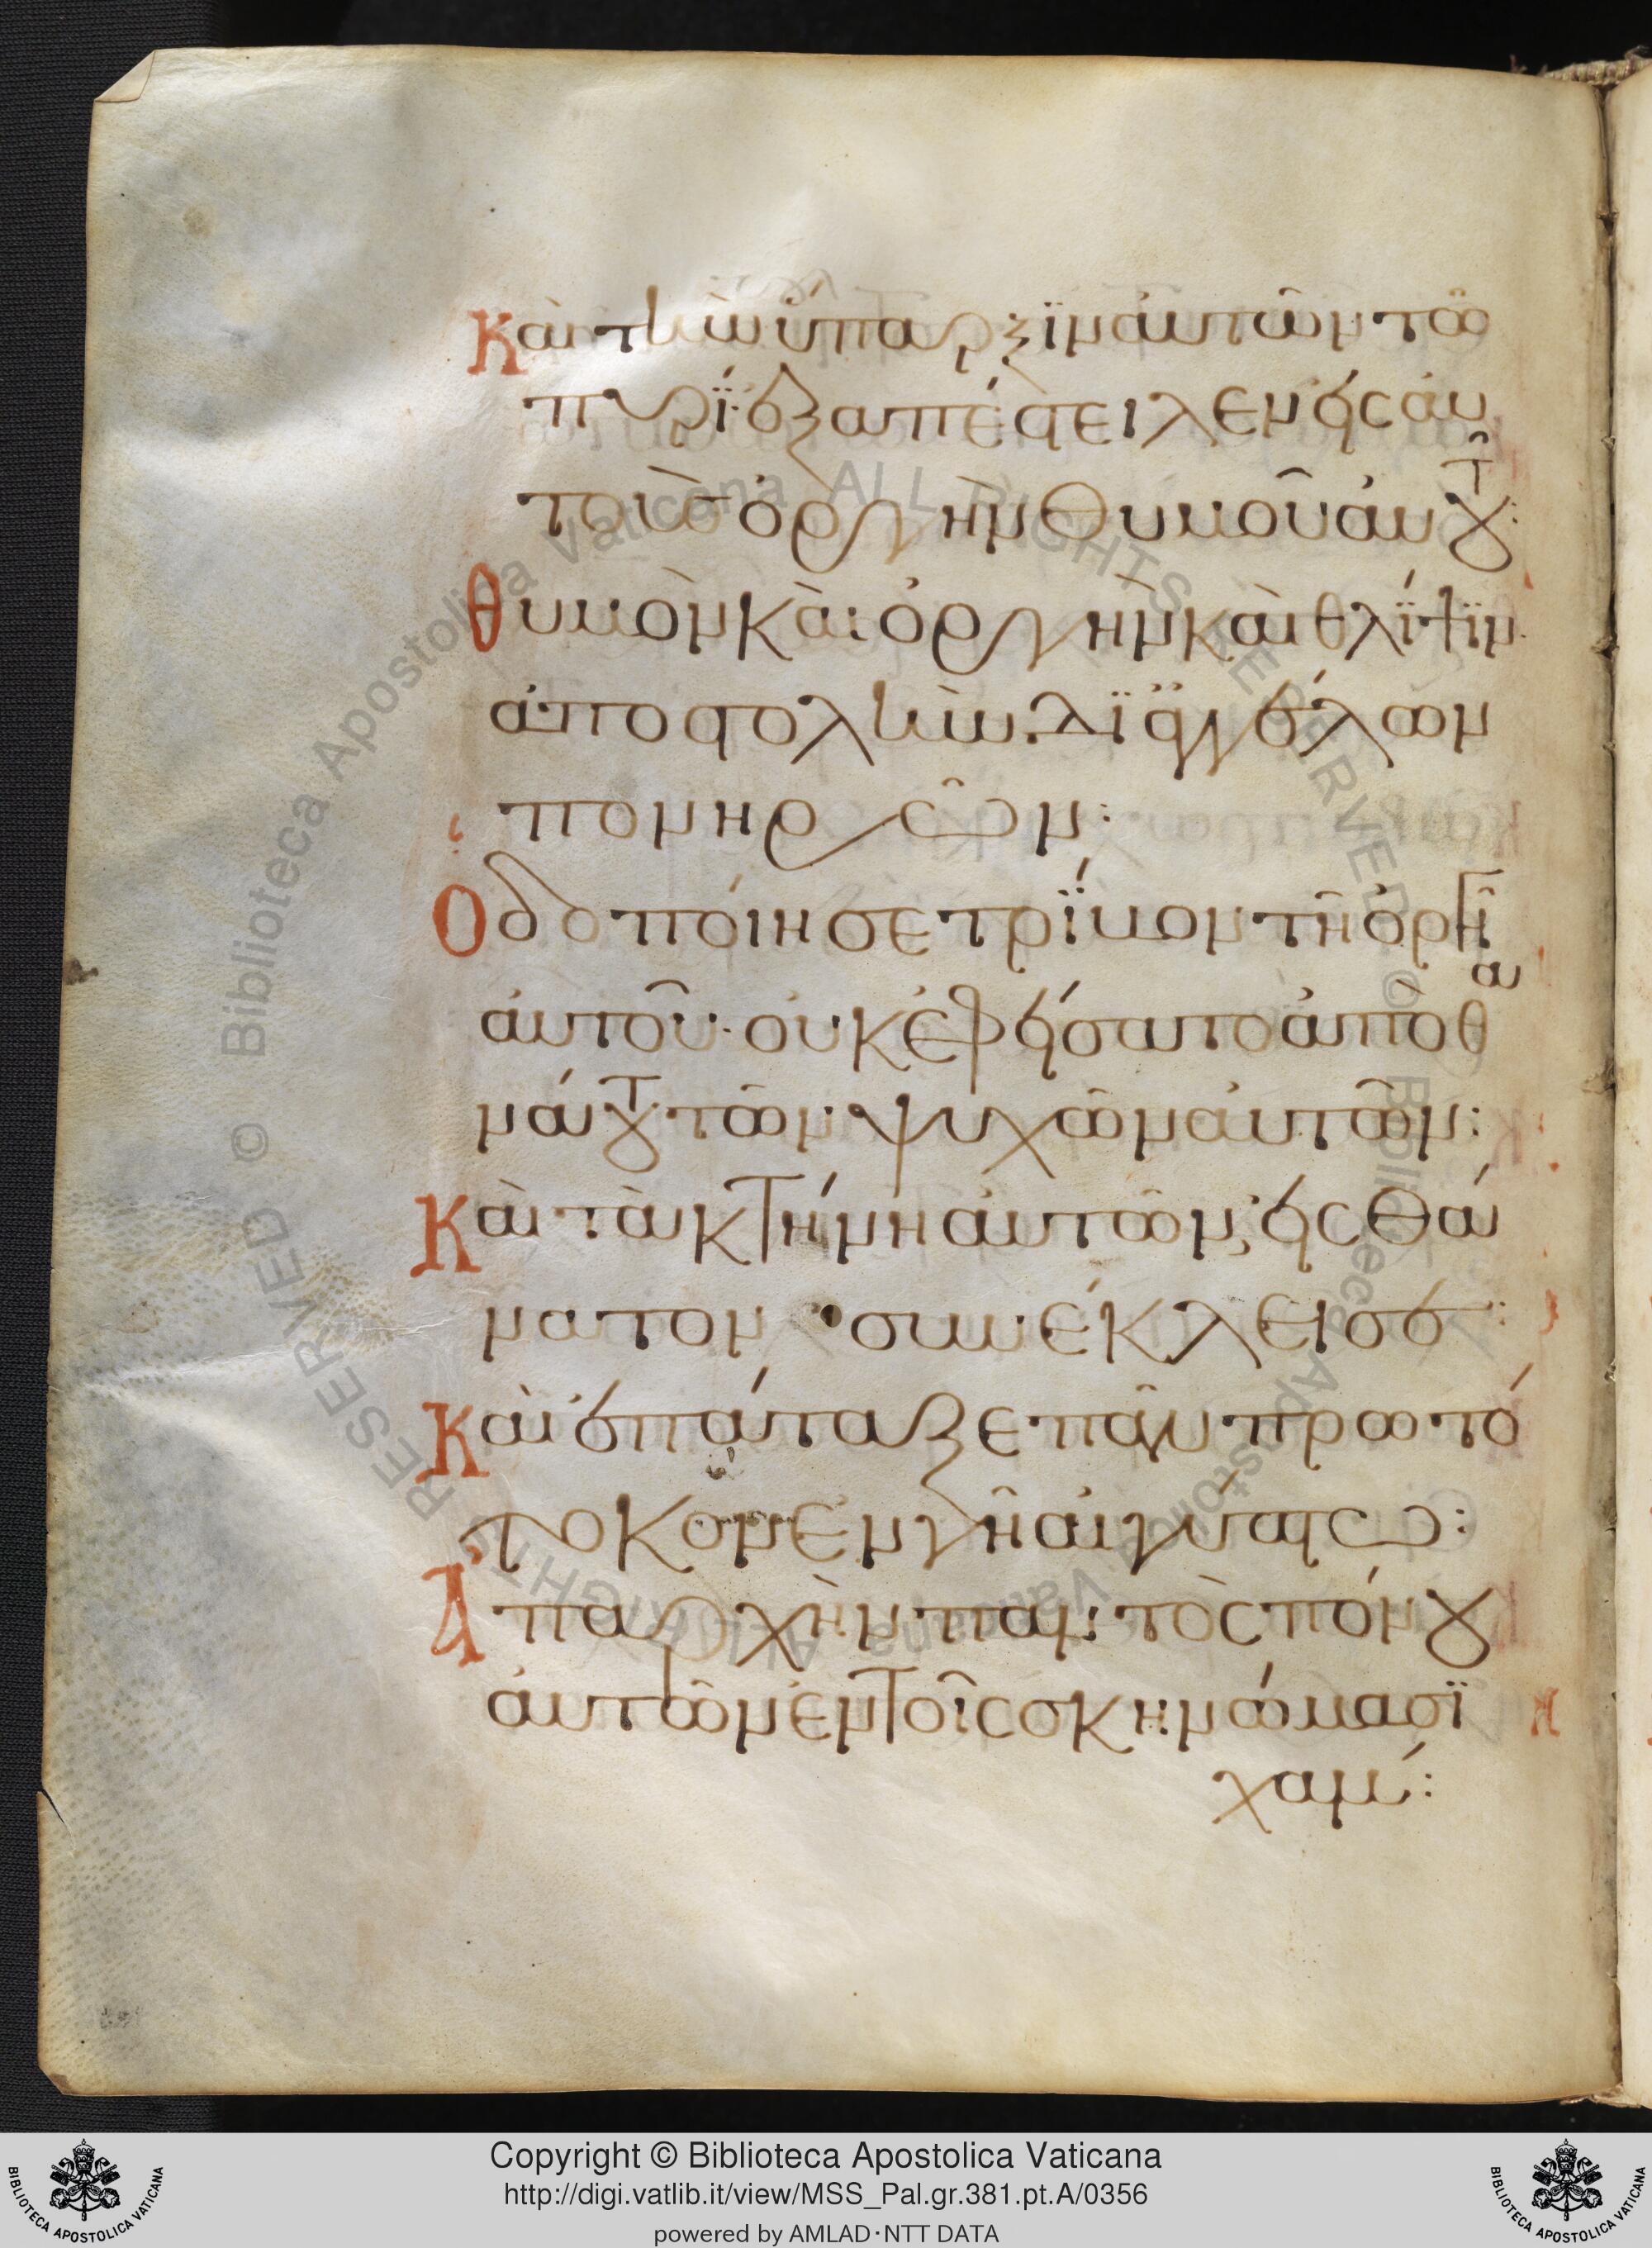 Καὶ τὴν ὕπαρξϊν αὐτῶν τῶ
πυρΐ· ἐξαπέστειλεν εἰς αὐ
τοὺς ὀργὴν θυμοῦ αὐτοῦ:
Θυμὸν καὶ ὀργὴν καὶ θλίψϊν·
ἀποστολὴν δϊ ἀγγέλων
πονηρῶν:
Ὁδοποίησε τρΐβον τῆ ὀργῆ
αὐτοῦ· οὐκ ἐφείσατο ἀπὸ θα
νάτου τῶν ψυχῶν αὐτῶν:
Καὶ τὰ κτήνη αὐτῶν, εἰς θά
νατον συνέκλεισε:
Καὶ ἐπάταξε πᾶν πρωτό
τοκον ἐν γῆ αἰγύπτω:
Ἀπαρχὴν παντὸς πόνου
αὐτῶν ἐν τοῖς σκηνώμασϊ
χάμ:
Copyright © Biblioteca Apostolica Vaticana
http://digi.vatlib.it/view/MSS_Pal.gr.381.pt.A/0356
powered by AMLAD·NTT DATA
BIBLIOTECA APOSTOLICA VATICANA
BIBLIOTECA APOSTOLICA VATICANA
Biblioteca Apostolica Vaticana ALL RIGHTS RESERVED ©
Biblioteca Apostolica Vaticana ALL RIGHTS RESERVED ©